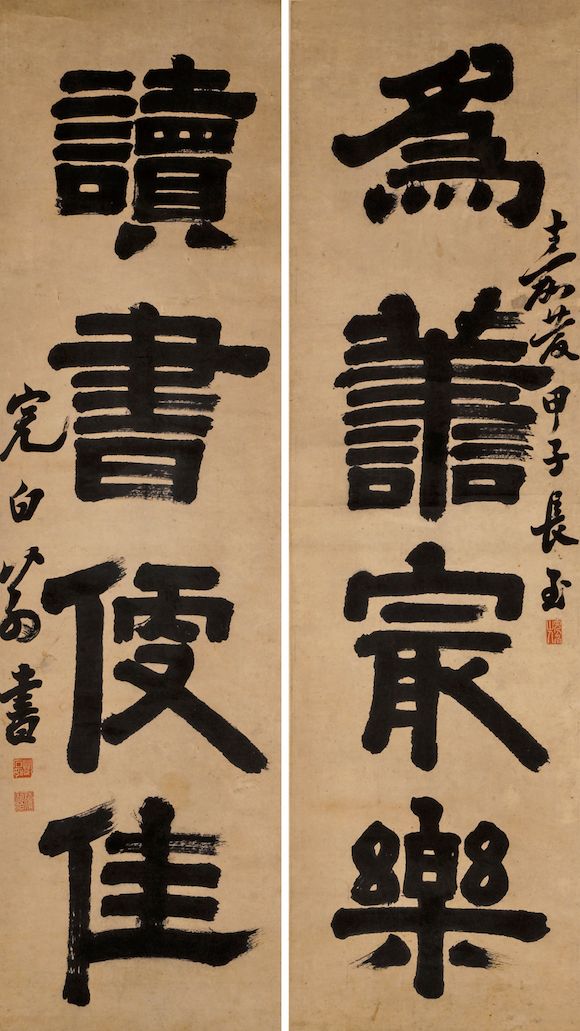 為善最樂
嘉慶甲子長至
讀書便佳
完白翁書